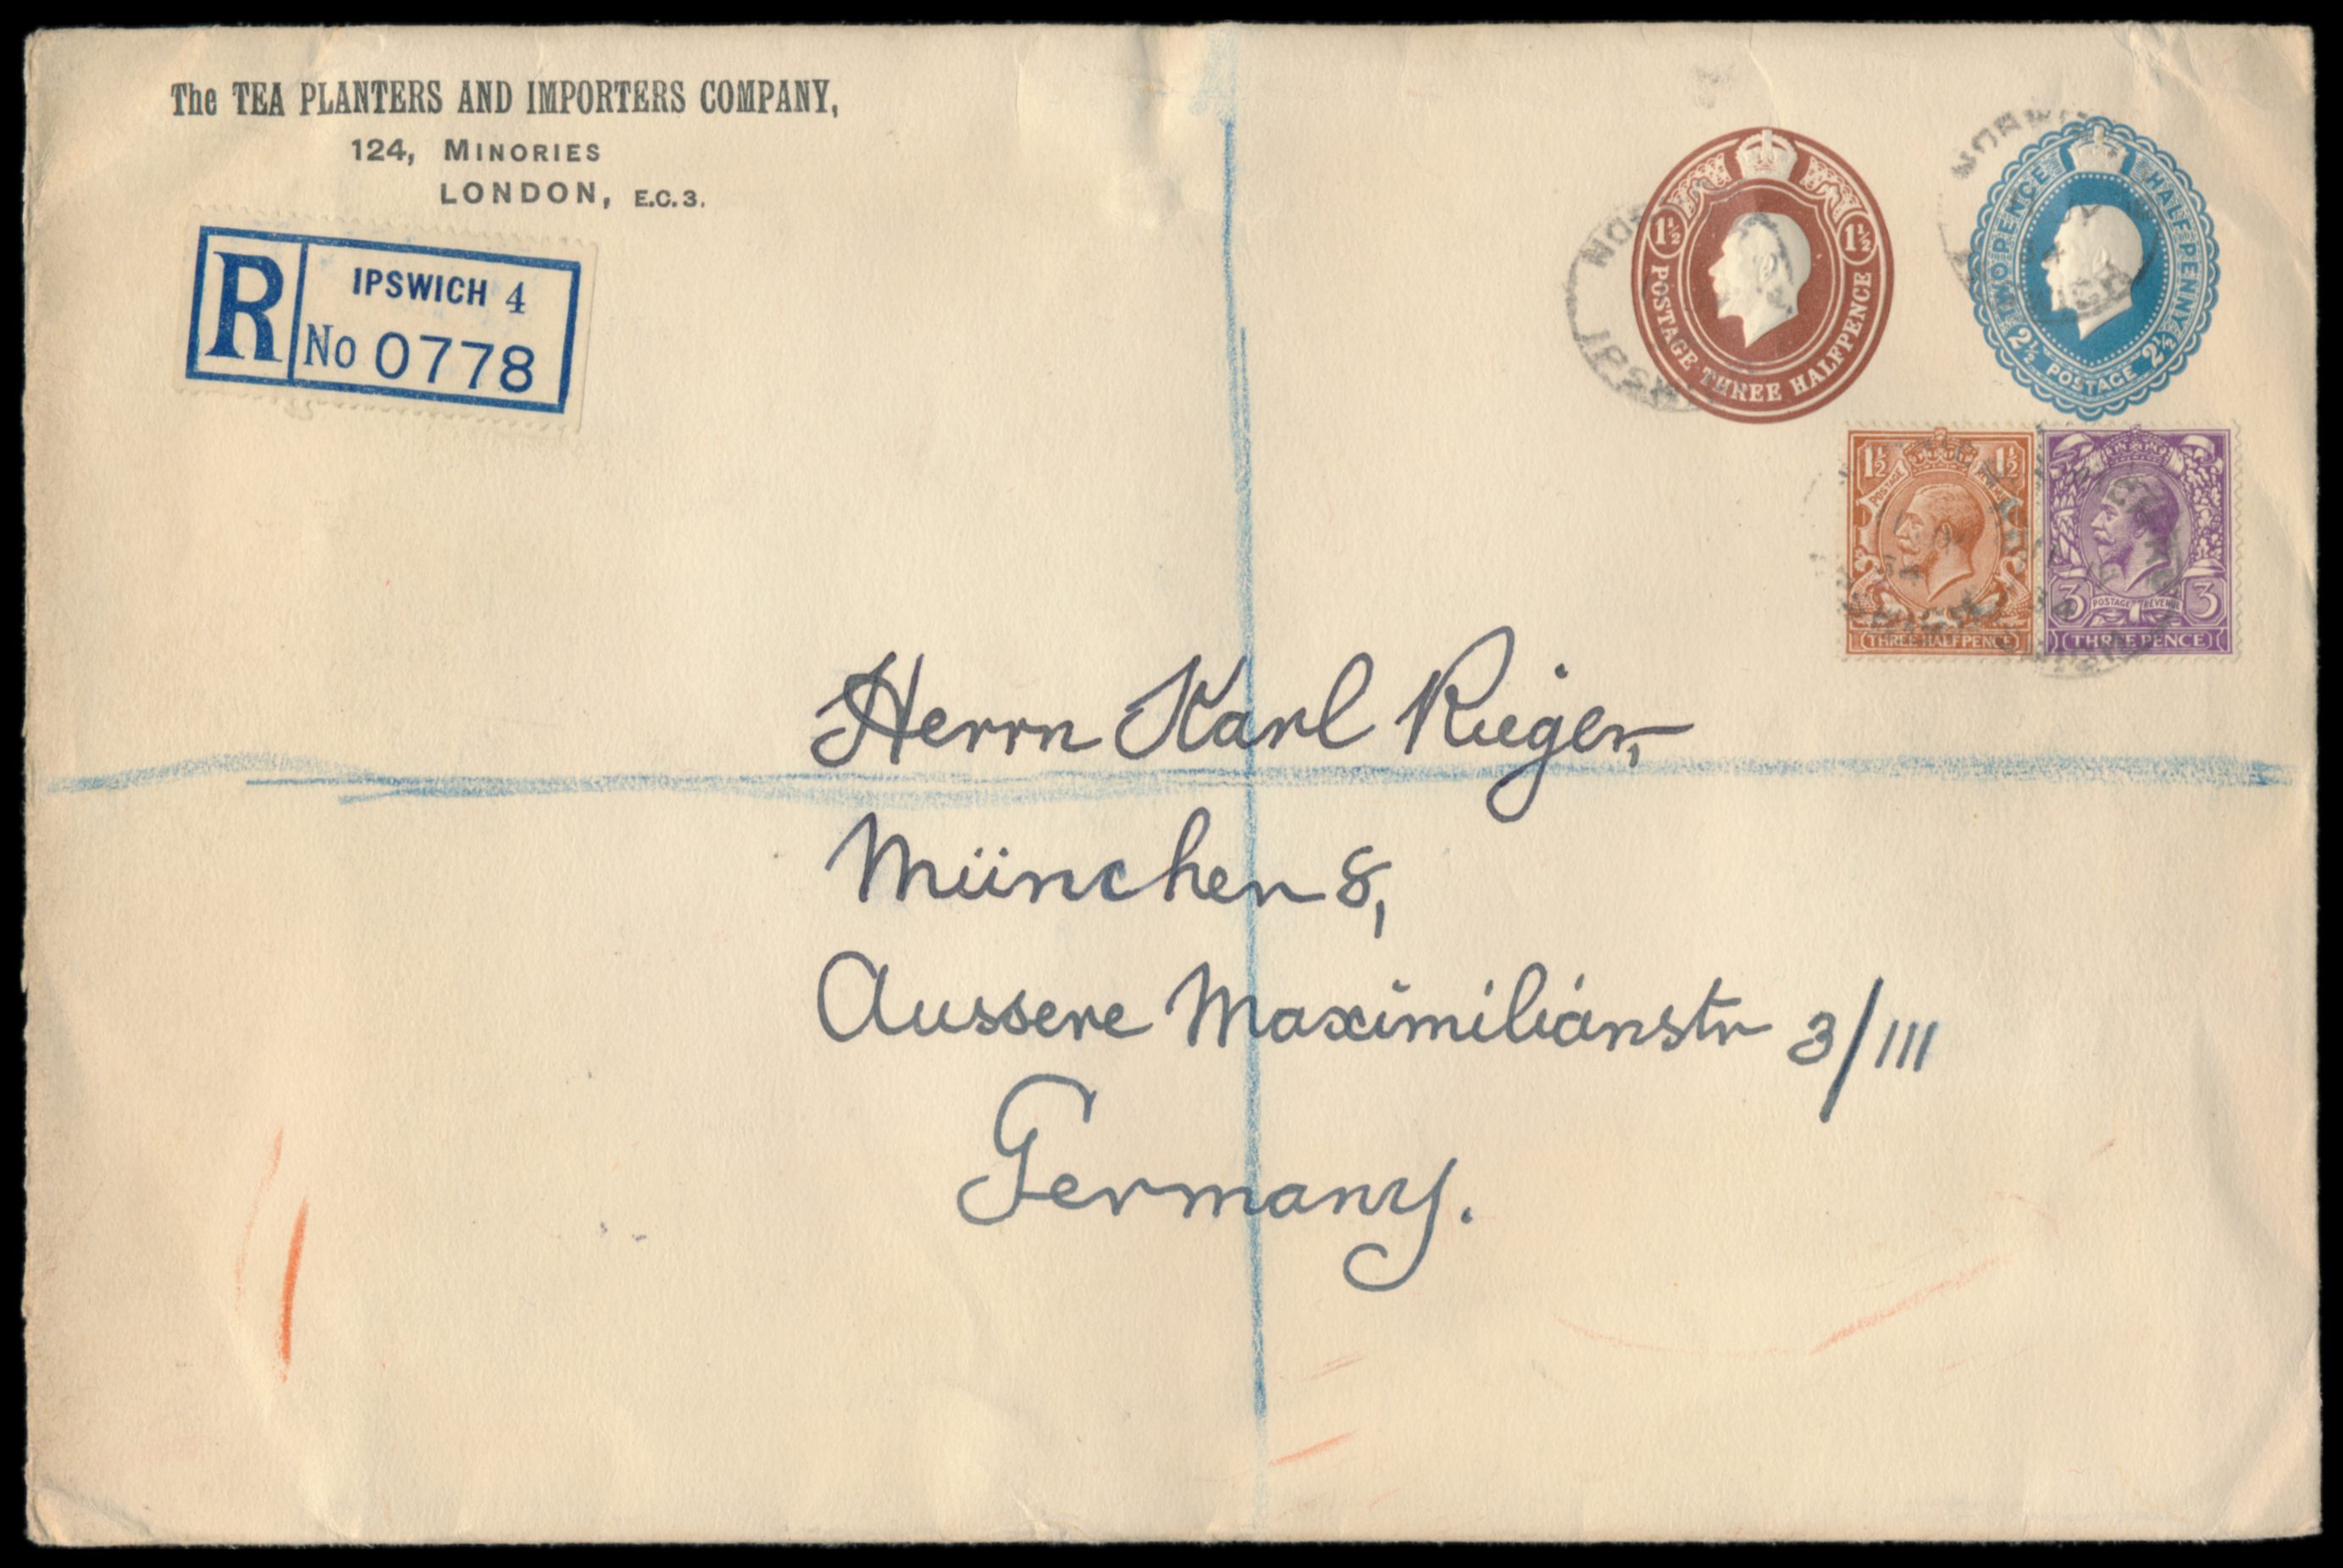 The TEA PLANTERS AND IMPORTERS COMPANY,
124, MINORIES
LONDON, E.C.3.
R
IPSWICH 4
No 0778
1½ 1½
POSTAGE THREE HALFPENCE
TWOPENCE HALFPENNY
2½ POSTAGE 2½
1½ 1½
POSTAGE
THREE HALFPENCE
3 POSTAGE REVENUE 3
THREE PENCE
Herrn Karl Rieger,
München 8,
Aussere Maximilianstr 3/III
Germany.